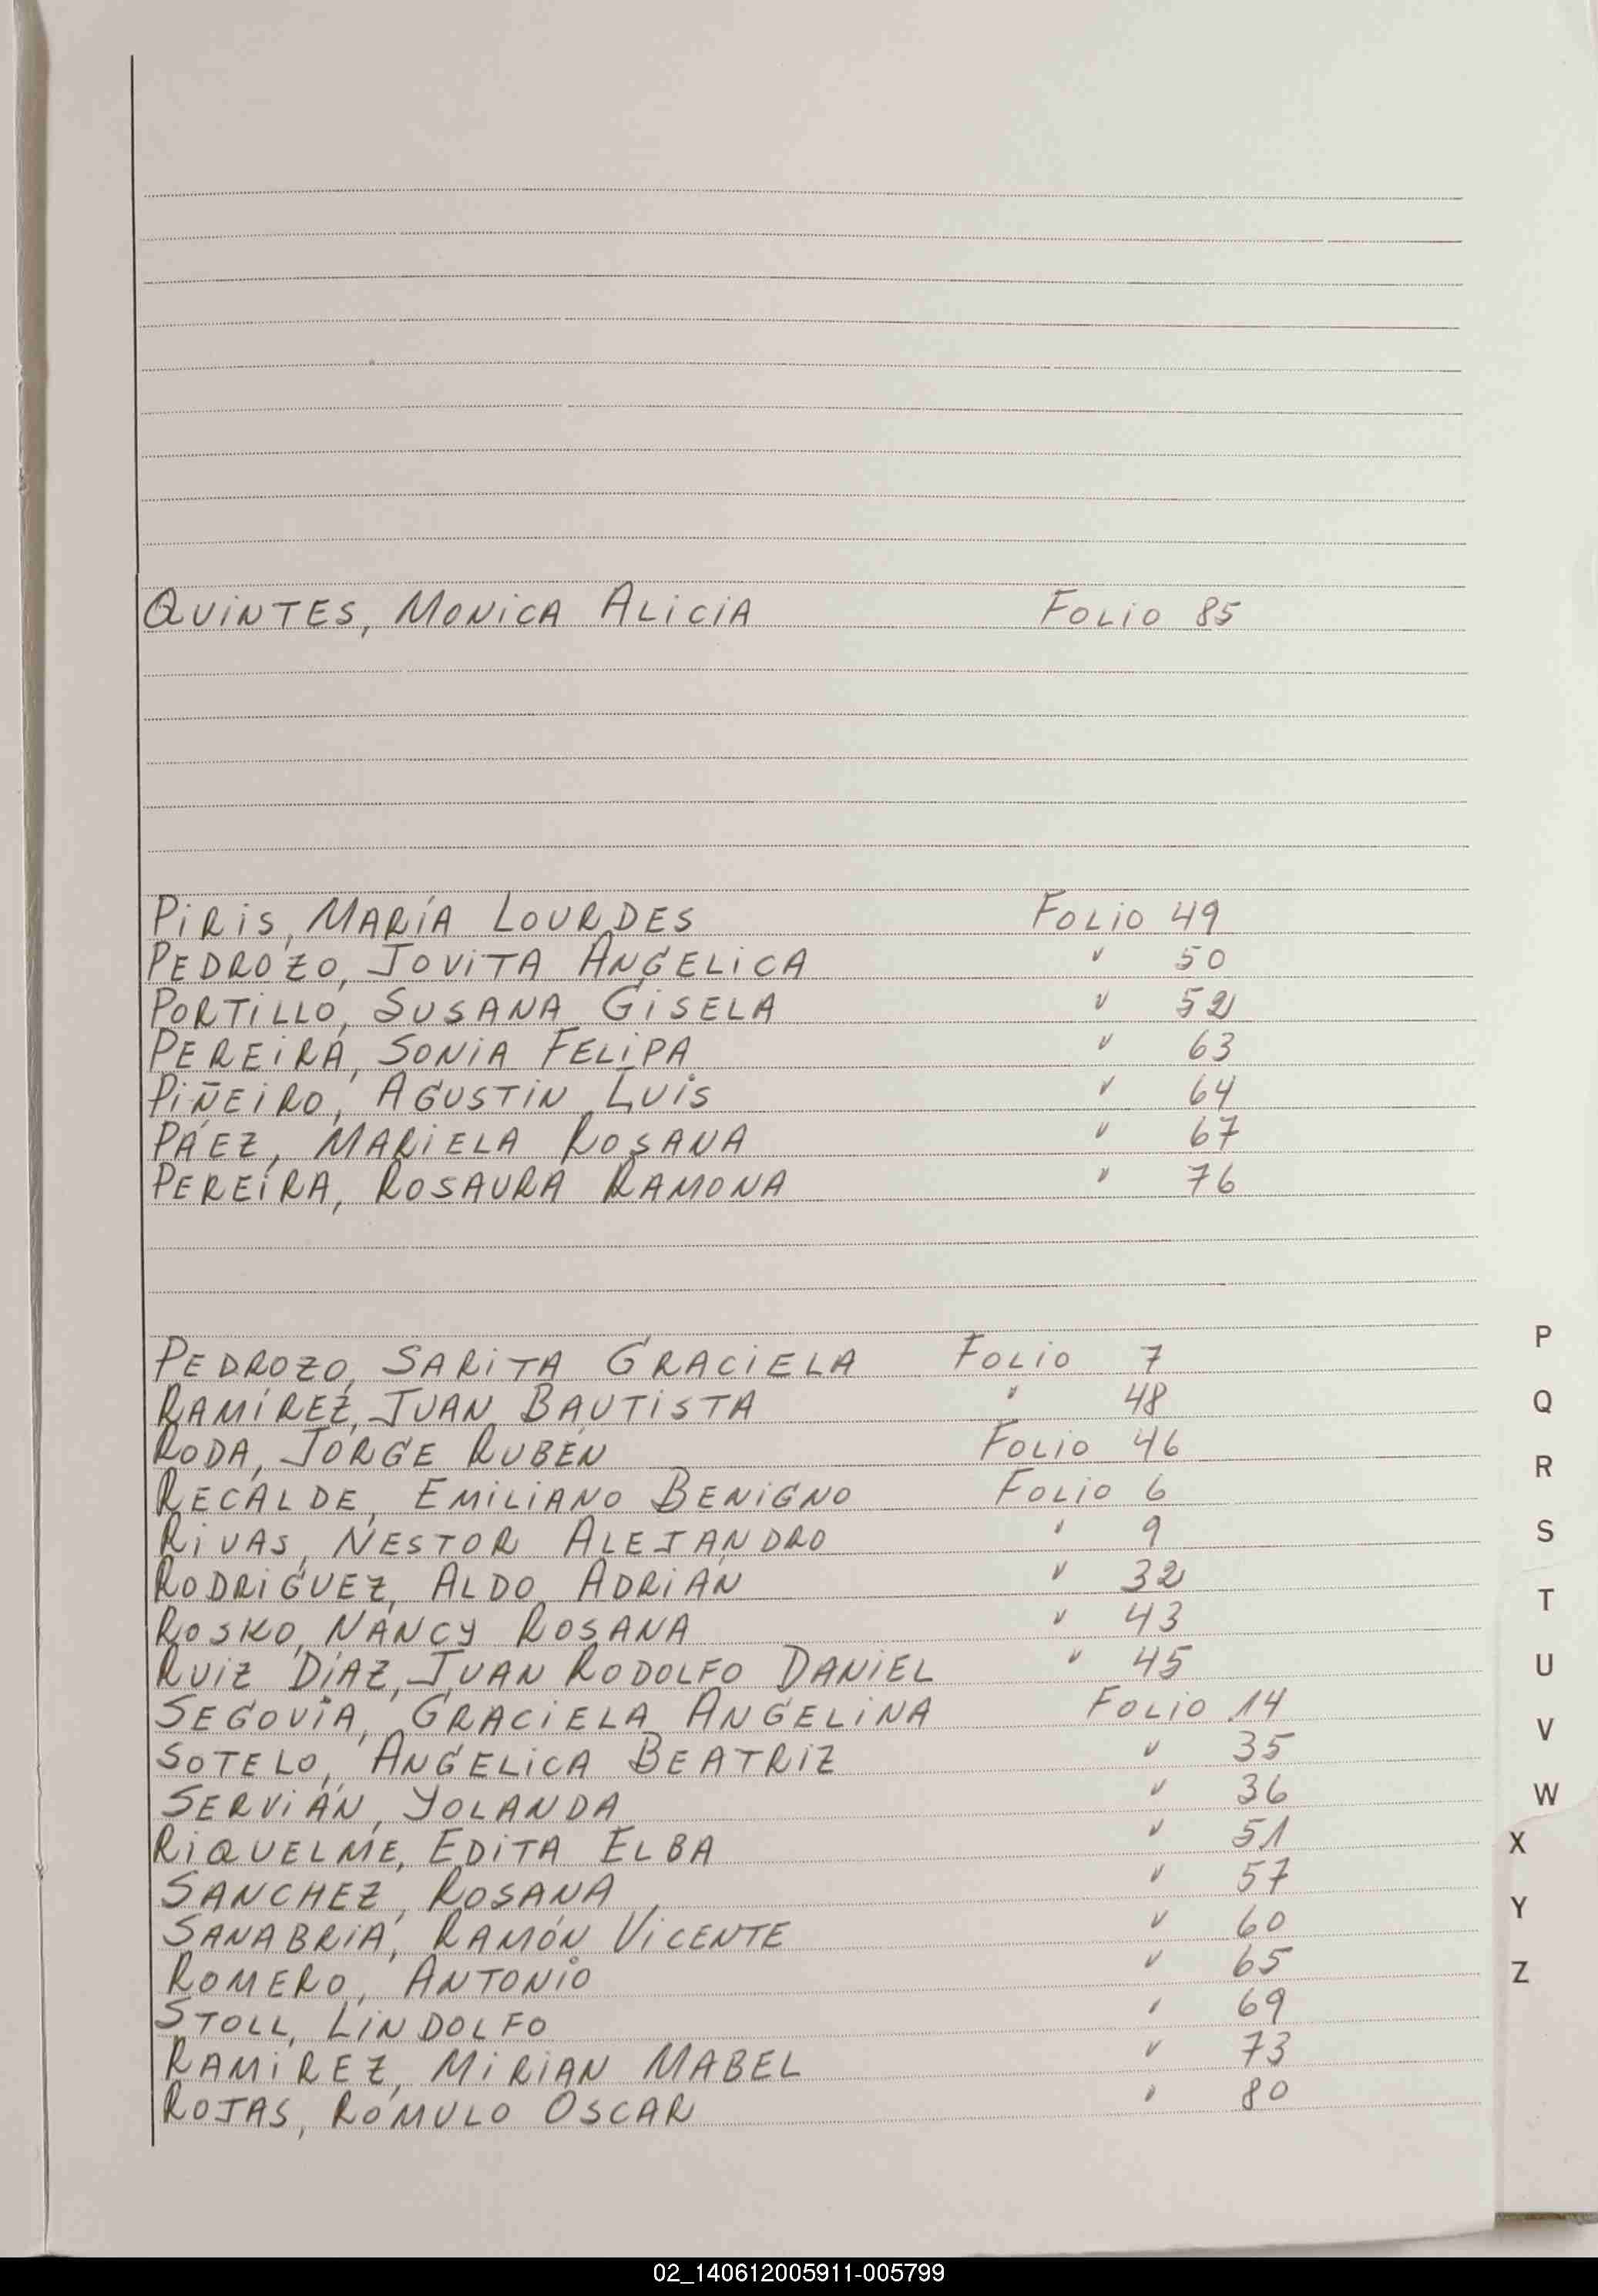 QUINTES, MONICA ALICIA FOLIO 85
PIRIS, MARÍA LOURDES FOLIO 49
PEDROZO, JOVITA ANGELICA " 50
PORTILLO, SUSANA GISELA " 52
PEREIRA, SONIA FELIPA " 63
PIÑEIRO, AGUSTIN LUIS " 64
PÁEZ, MARIELA ROSANA " 67
PEREIRA, ROSAURA RAMONA " 76
PEDROZO, SARITA GRACIELA FOLIO 7
RAMÍREZ, JUAN BAUTISTA " 48
RODA, JORGE RUBÉN FOLIO 46
RECALDE, EMILIANO BENIGNO FOLIO 6
RIVAS, NESTOR ALEJANDRO " 9
RODRIGUEZ, ALDO ADRIÁN " 32
ROSKO, NANCY ROSANA " 43
RUIZ DÍAZ, JUAN RODOLFO DANIEL " 45
SEGOVIA, GRACIELA ANGELINA FOLIO 14
SOTELO, ANGELICA BEATRIZ " 35
SERVIÁN, YOLANDA " 36
RIQUELME, EDITA ELBA " 51
SANCHEZ, ROSANA " 57
SANABRIA, RAMÓN VICENTE " 60
ROMERO, ANTONIO " 65
STOLL, LINDOLFO " 69
RAMIREZ, MIRIAN MABEL " 73
ROJAS, ROMULO OSCAR " 80
P
Q
R
S
T
U
V
W
X
Y
Z
02_140612005911-005799